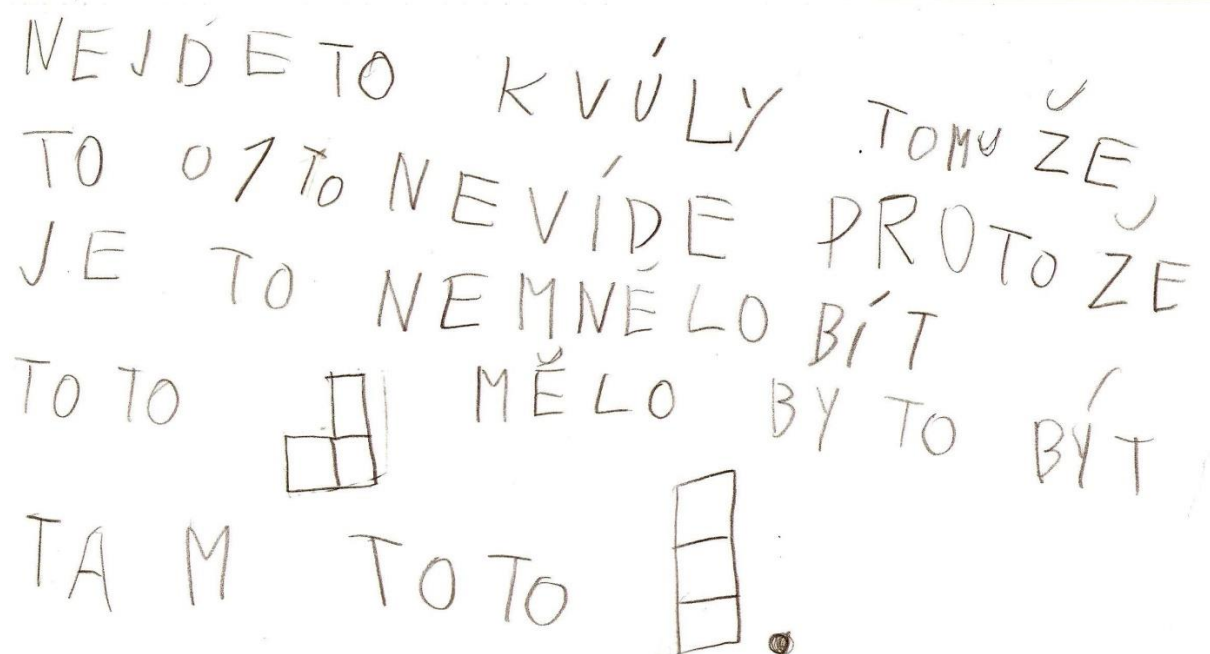 NEJDE TO KVŮLY TOMU ŽE
TO O 1 TO NEVÍDE PROTOŽE
JE TO NEMNĚLO BÍT
TOTO MĚLO BY TO BÝT
TAM TOTO .